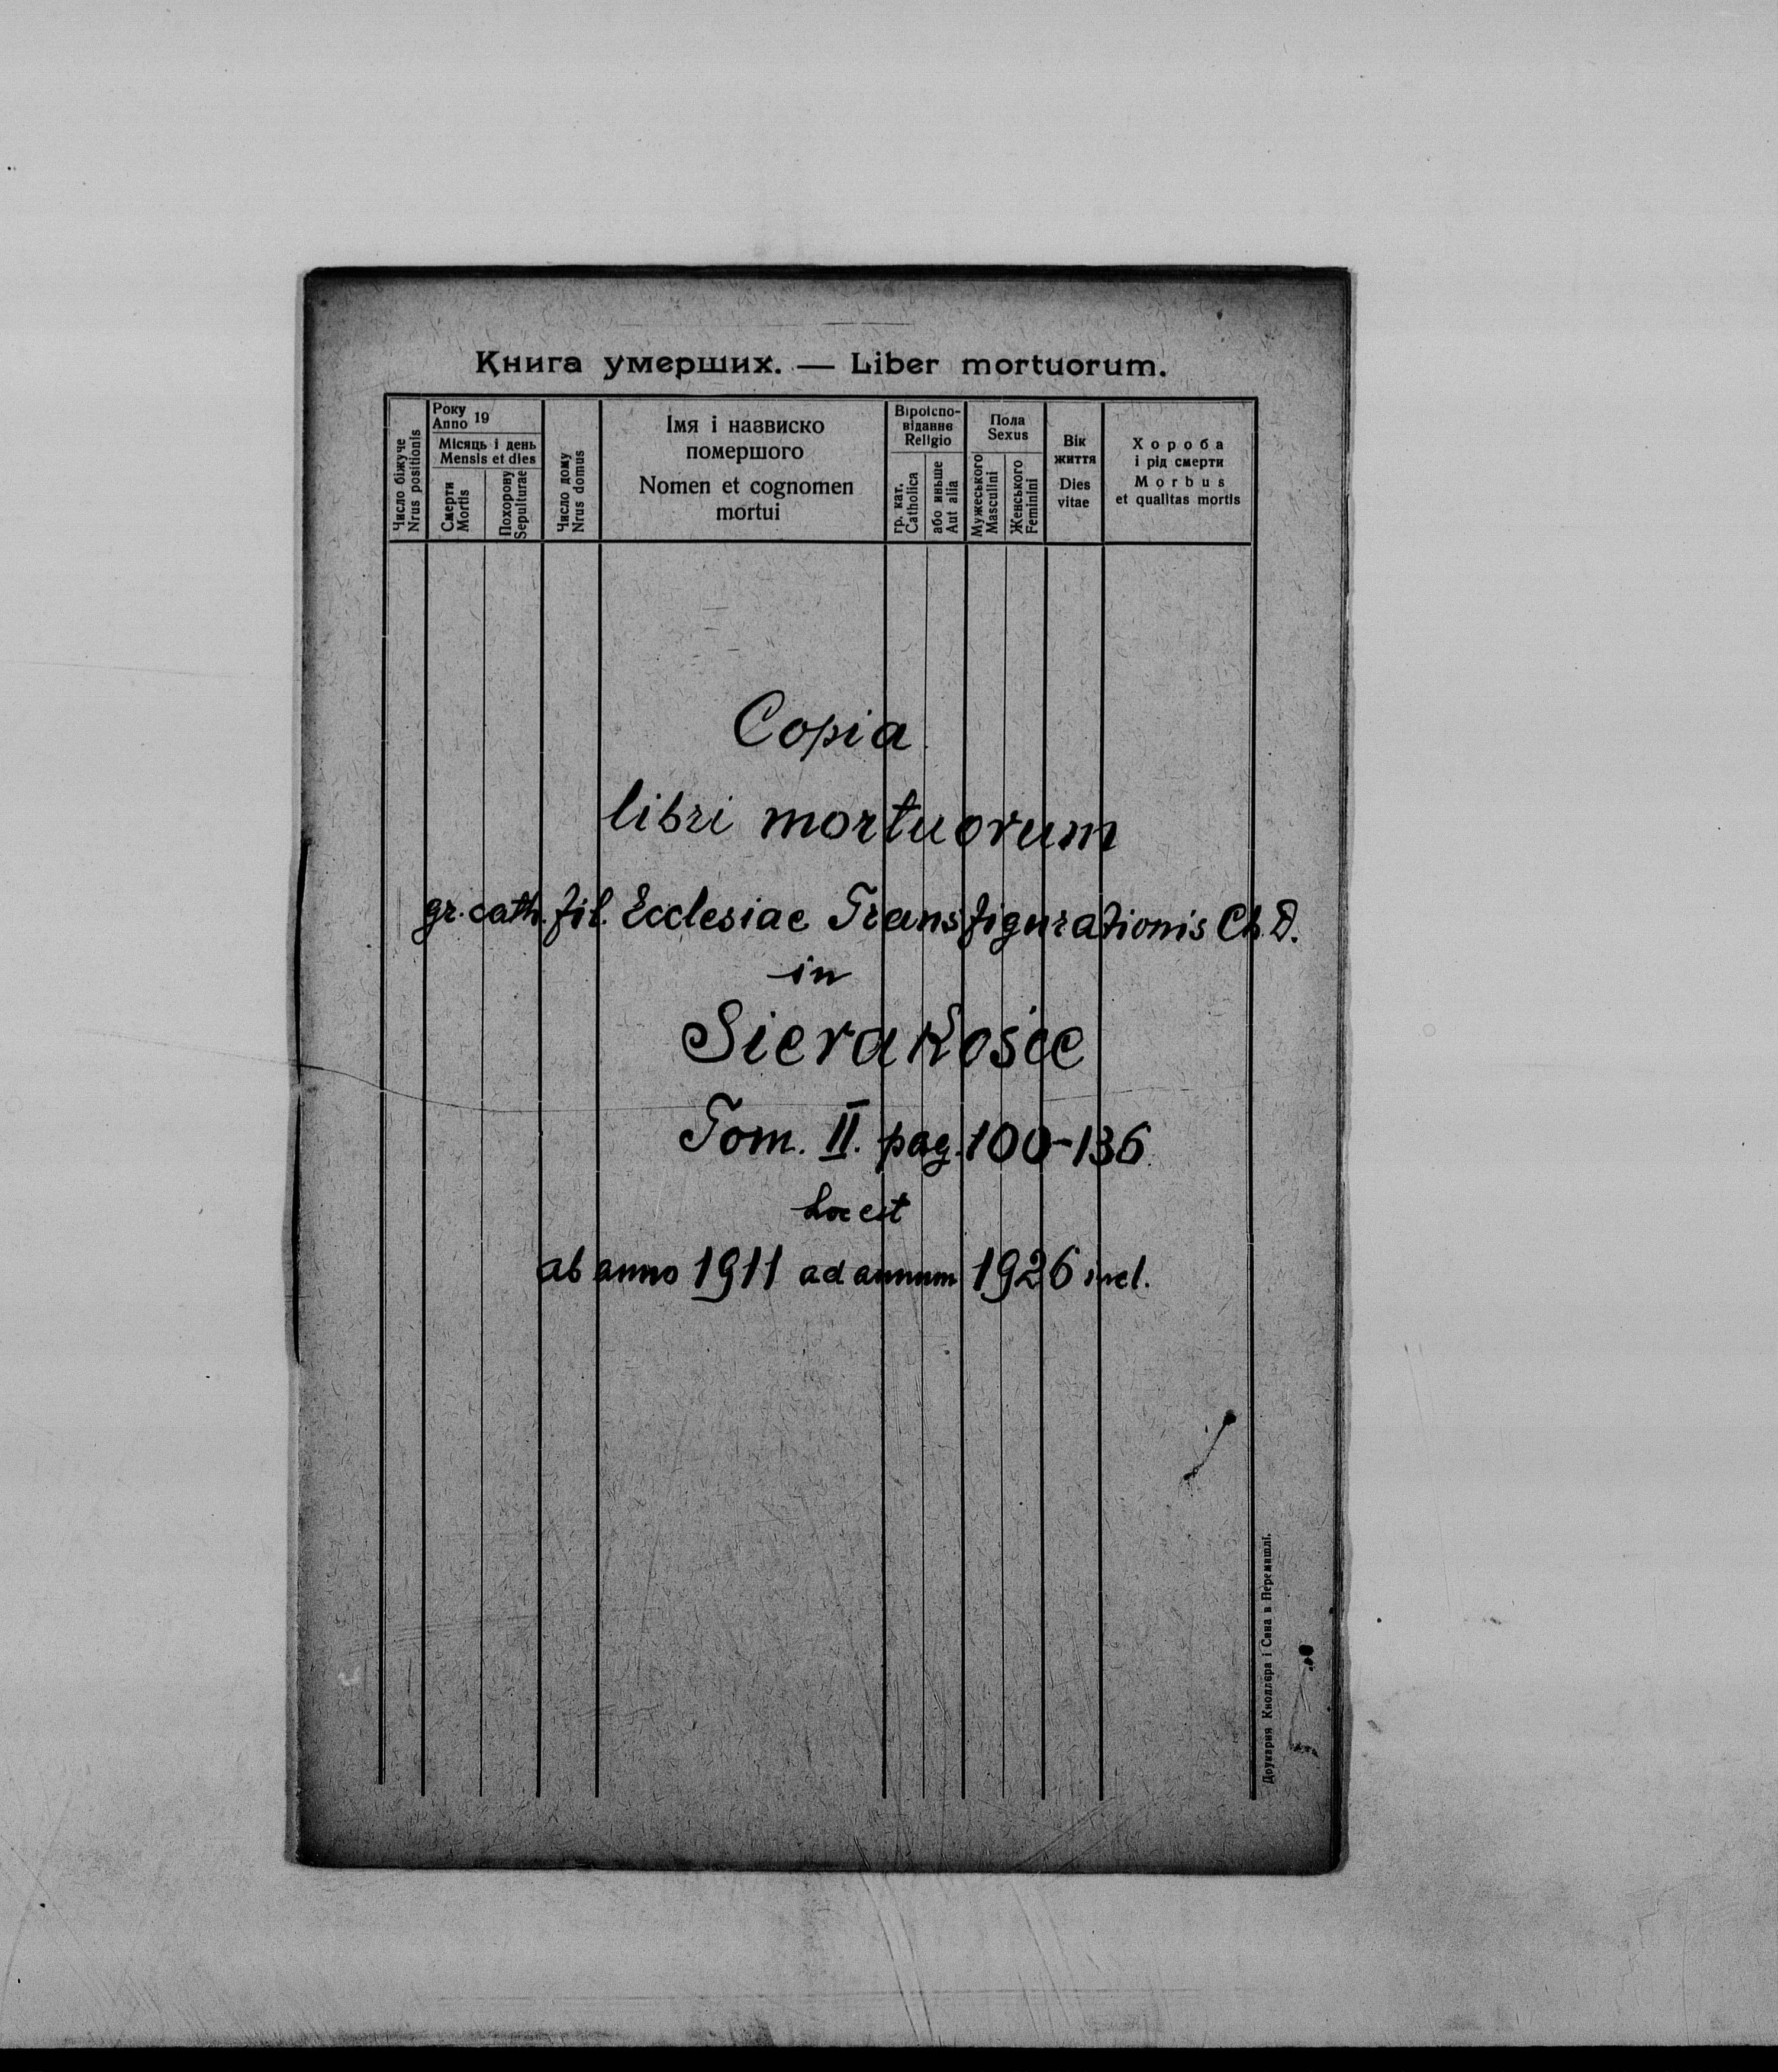 Книга умерших. — Liber mortuorum.
Число біжуче
Nrus positionis
Року
Anno 19
Місяць і день
Mensis et dies
Смерти
Mortis
Похорову
Sepulturae
Число дому
Nrus domus
Імя і назвиско
помершого
Nomen et cognomen
mortui
Віроіспо-
віданнє
Religio
гр. кат.
Catholica
або иньше
Aut alia
Пола
Sexus
Мужеського
Masculini
Женського
Feminini
Вік
життя
Dies
vitae
Хороба
і рід смерти
Morbus
et qualitas mortis
Copia
libri mortuorum
gr. cath. fil. Ecclesiae Transfigurationis Ch. D.
in
Sierakośce
Tom. II. pag. 100-136.
hoc est
ab anno 1911 ad annum 1926 incl.
Друкарня Кноллера і Сина в Перемишлі.